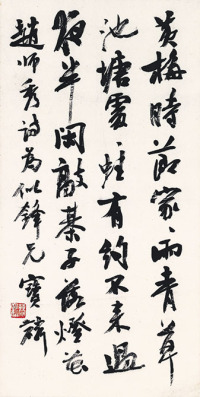 黃梅時節家〻雨青草
池塘處〻蛙有約不来過
夜半閑敲棊子落燈花
趙師秀詩為似鋒兄 寶